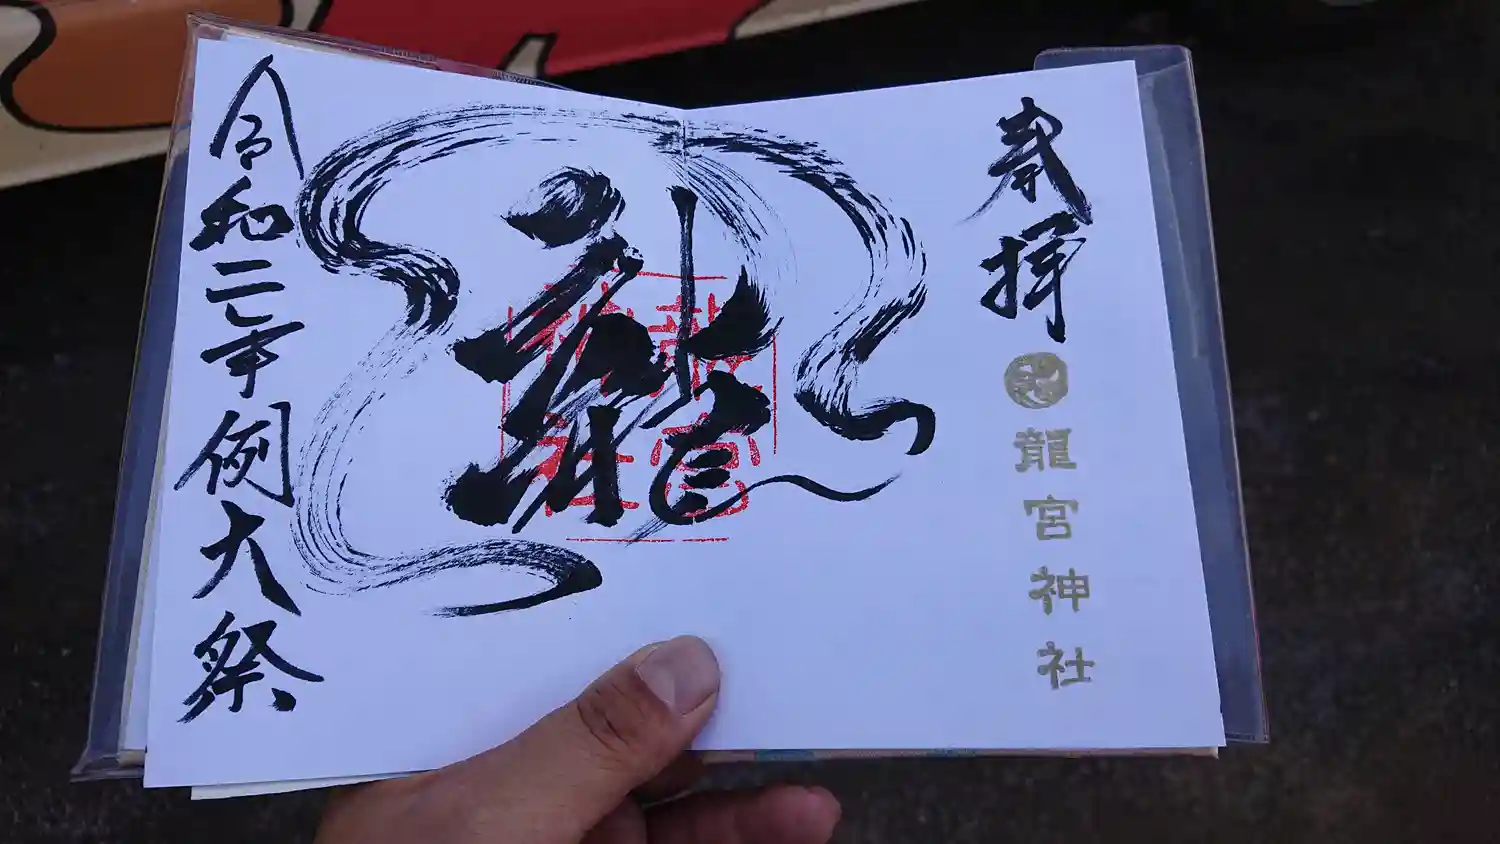 奉拝
龍宮神社
龍
龍宮
神社
令和二年例大祭